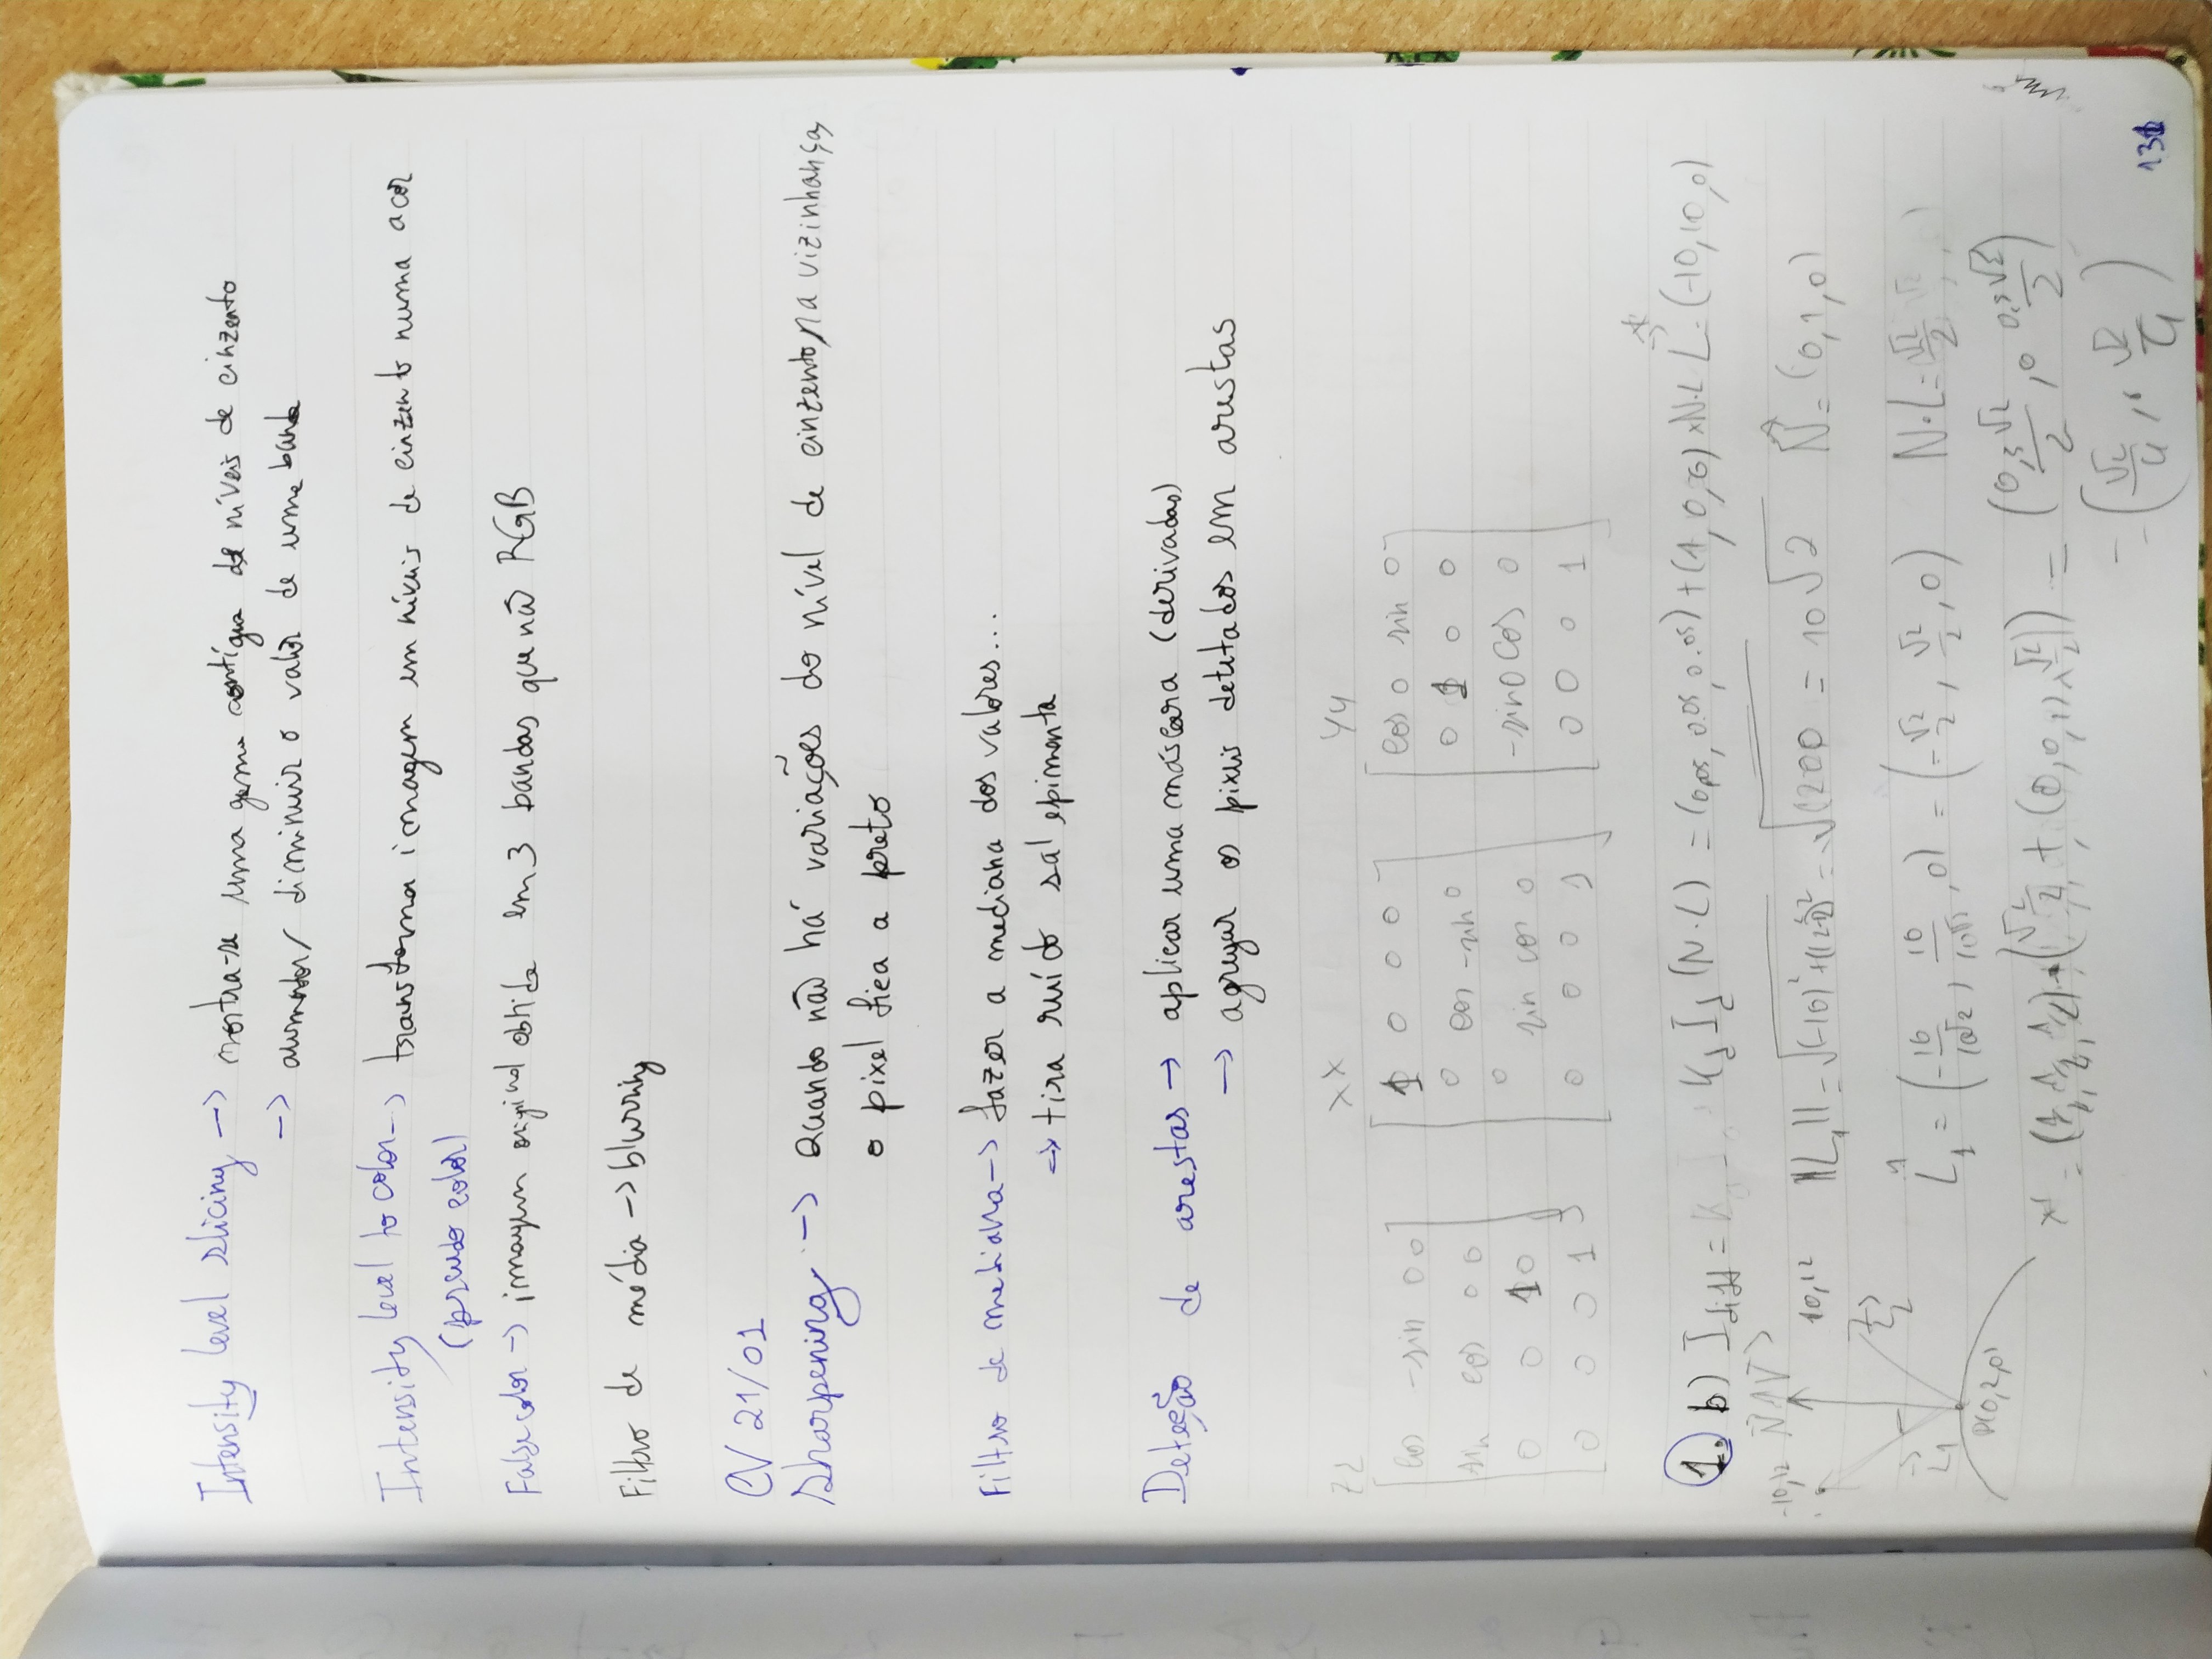 Intensity level slicing -> mostra-se uma gama contígua de níveis de cinzento
-> aumentar/ diminuir o valor de uma banda
Intensity level to color -> transforma imagem em níveis de cinzento numa a cor
(pseudo color)
False color -> imagem original obtida em 3 bandas que não RGB
Filtro de média -> blurring
CV 21/01
Sharpening -> Quando não há variações do nível de cinzento, na vizinhança,
o pixel fica a preto
Filtro de mediana -> fazer a mediana dos valores...
=> tira ruído sal e pimenta
Deteção de arestas -> aplicar uma máscara (derivadas)
-> agregar os pixeis detetados em arestas
ZZ XX YY
cos -sin 0 0 1 0 0 0 cos 0 sin 0
sin cos 0 0 0 cos -sin 0 0 1 0 0
0 0 1 0 0 sin cos 0 -sin 0 cos 0
0 0 0 1 0 0 0 1 0 0 0 1
1. b) Idiff = Kd Id (N·L) = (0,05, 0.05, 0.05) + (1, 0, 0) × N·L L = (-10, 10, 0)
-10,12 N 10,12 ||L1|| = √(-10)² + (12-2)² = √200 = 10√2 N = (0,1,0)
L2
L1 L1 = (-10/10√2, 10/10√2, 0) = (-√2/2, √2/2, 0) N·L = √2/2
P(0,2,0)
= (1/2, 1/2, 1/2) · (√2/2 + (0,0,1) × √2/2) = (0,5√2/2, 0 0,5√2/2)
= (√2/4, 0, √2/4)
131